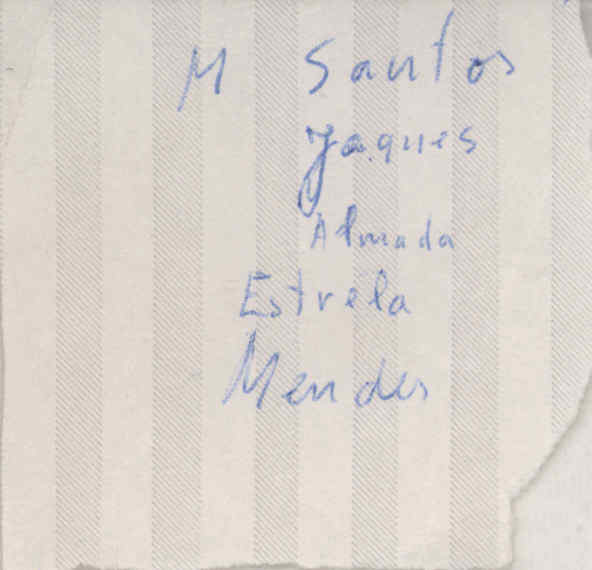 M Santos
Jaques
Almada
Estrela
Mendes